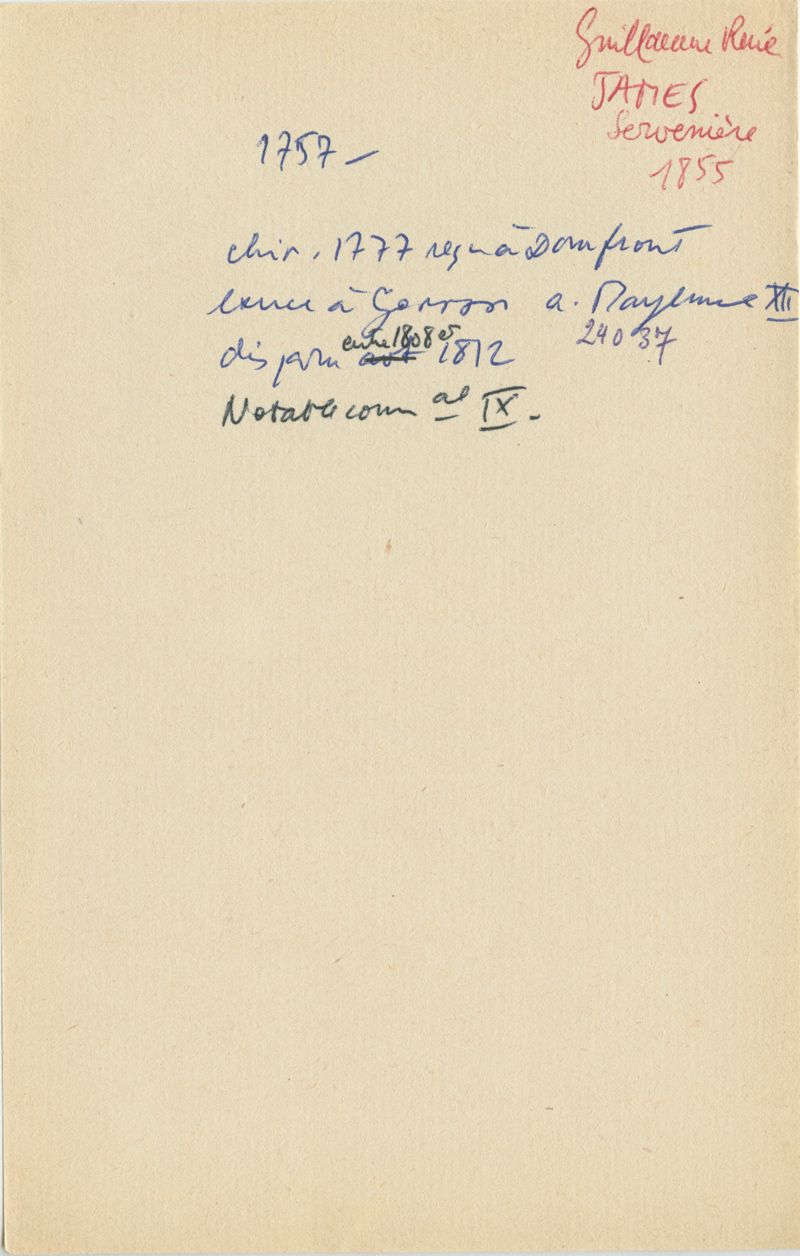 Guillaume René
JAMES
Servenière
1855
1757 –
chir. 1777 reçu à Domfront
exerce à Gorron a. Mayenne XII
disparu avt entre 1808 et 1812 24037
Notable comm al IX -